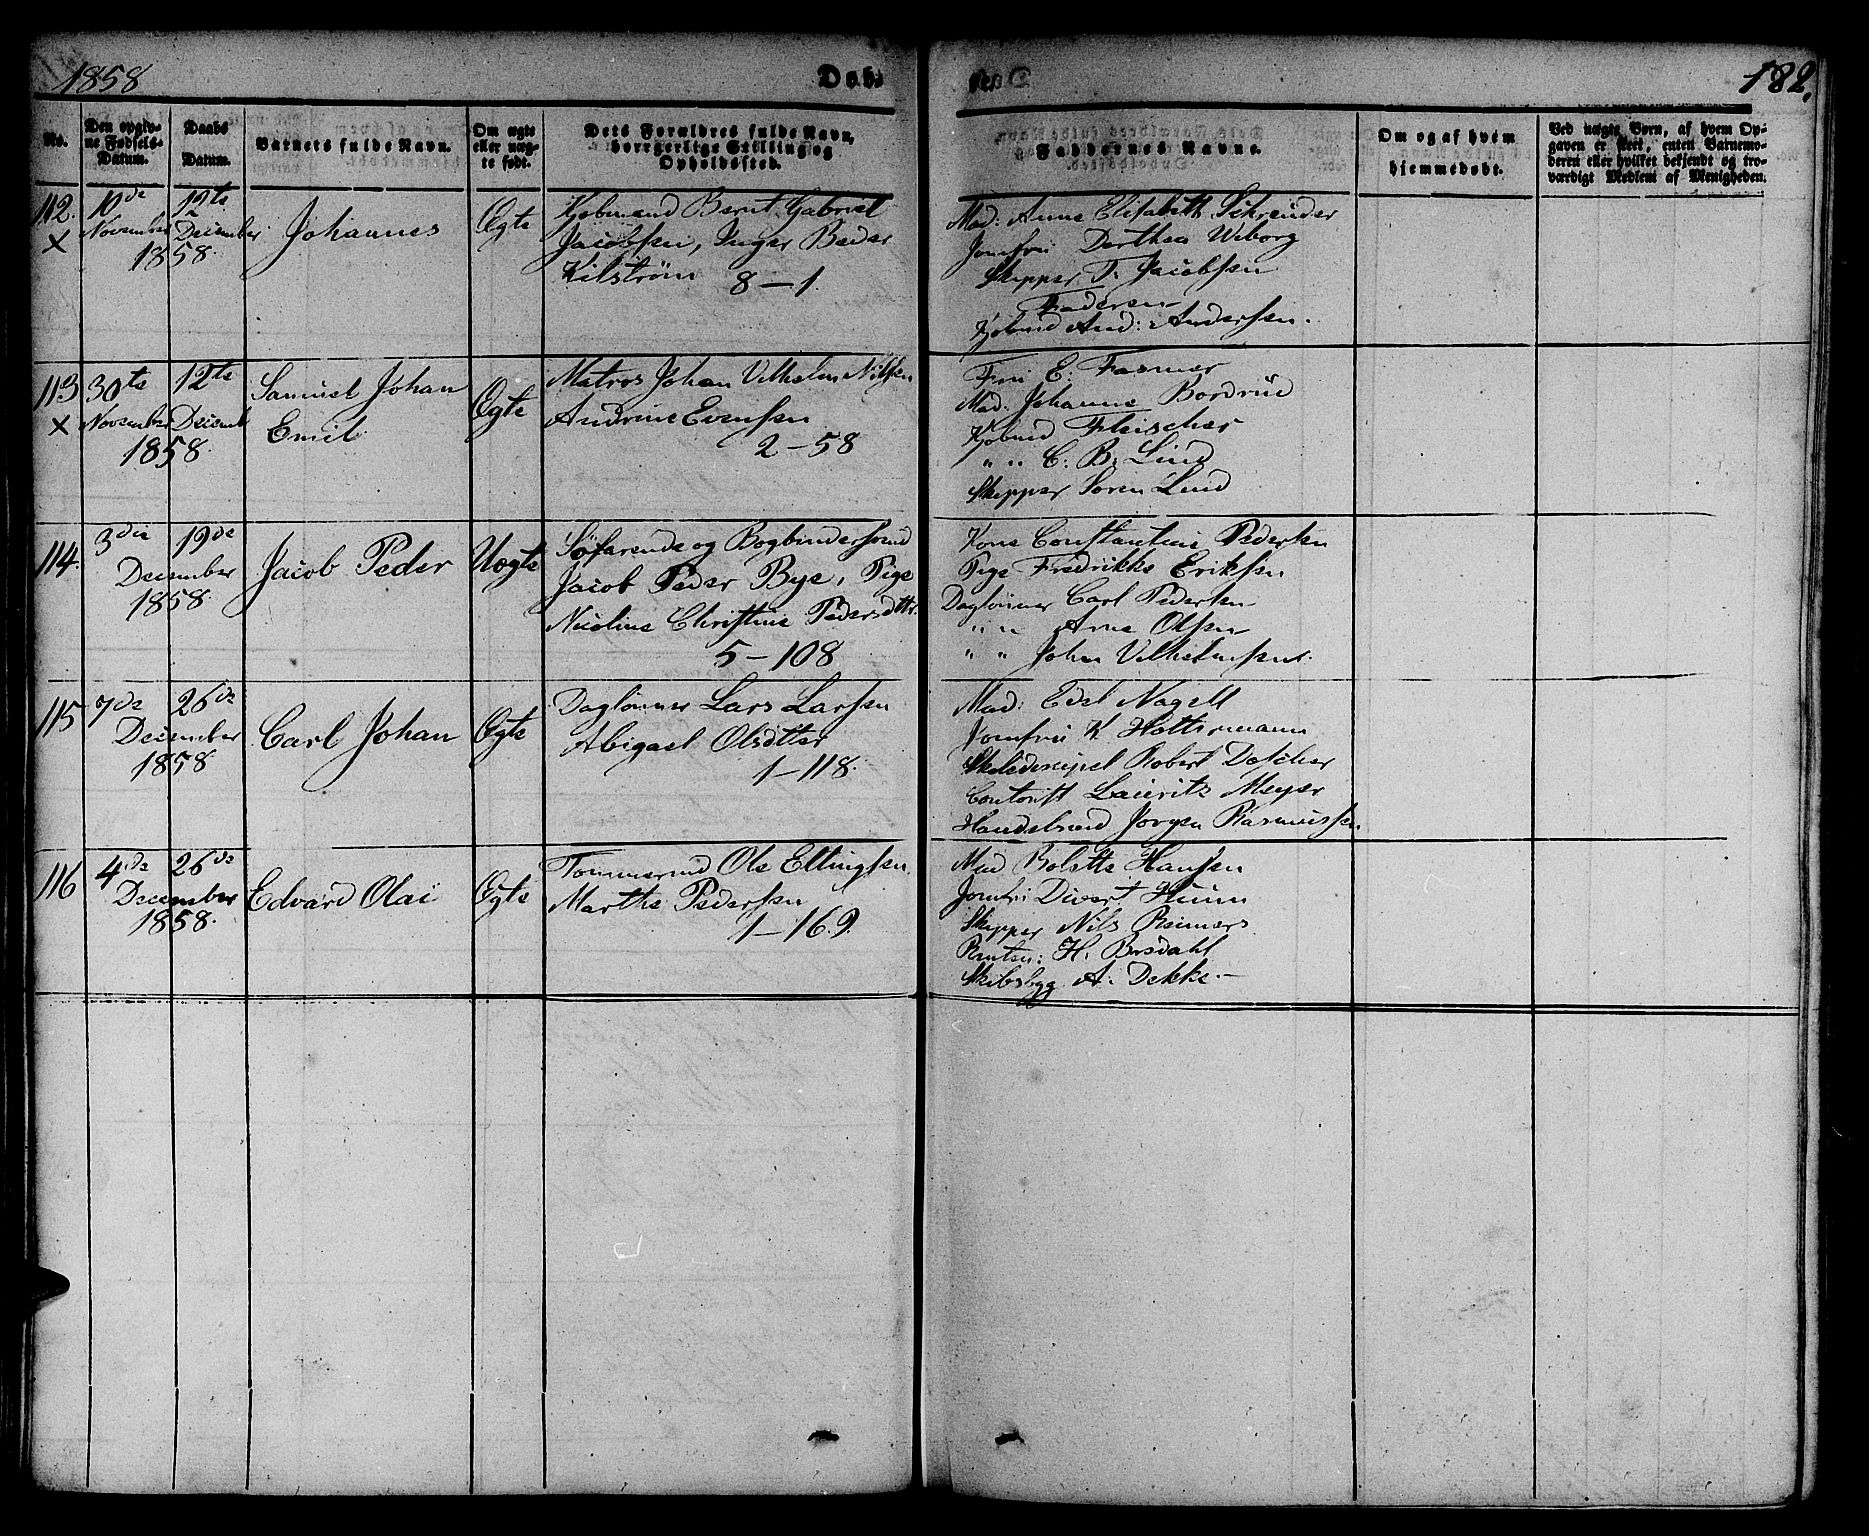 1858
Døbt
182.
No.
Den opgiv-
ne Fødsels-
Datum.
Daabs
Datum.
Barnets fulde Navn.
Om ægte
eller uæg-
te født.
Dets Forældres fulde Navn,
borgerlige Stilling og
Opholdssted.
Faddernes Navne.
Om og af hvem
hjemmedøbt.
Ved uægte Børn, af hvem Op-
gaven er skeet, enten Barnemo-
deren eller hvilket bekjendt og tro-
værdigt Medlem af Menigheden.
112.
X
10de
November
12te
December
1858.
Johannes
Ægte
Kjøbmand Bernt Gabriel
Jacobsen, Inger Beder
Kilstrøm 8-1.
Mad. Anna Elisabeth Schreuder
Jomfru Dorthea Wiborg
Skipper T. Jacobsen
Faderen
Kjøbmd And: Andersen.
113
X
30te
November
12te
Decemb
1858.
Samuel Johan
Emil
Ægte
Matros Johan Vilhelm Nilsen
Andrine Evensen
2-58
Fru E. Fasmer
Mad. Johanne Bordrüe
Kjøbmd Fleischer
" " C. B. Lind
Skipper Søren Lind
114.
3die
19de
December
1858.
Jacob Peder
Uægte
Søfarende og Bogbindersvend
Jacob Peder Bye, Pige
Nicoline Christine Pedersdttr.
5-108
Kone Constantine Pedersen
Pige Fredrikke Eriksen
Daglønner Carl Pedersen
" " Arne Olsen
" " Johan Vilhelmsen.
115
7de
26de
December
1858
Carl Johan
Ægte
Daglønner Lars Larsen
Abigael Olsdtter
1-118.
Mad: Edel Nagell
Jomfru K. Holtermann
Skoledicipel Robert Døscher
Contorist Lauritz Meyer
Handelsmd Jørgen Rasmussen
116
4de
26de
December
1858.
Edvard Olai
Ægte
Tømmermd Ole Ellingsen
Marthe Pedersen
1-169.
Mad Bolette Hansen
Jomfru Divert Huun
Skipper Nils Reimers
H. Borsdahl
Skibsbyg A. Dekke.-